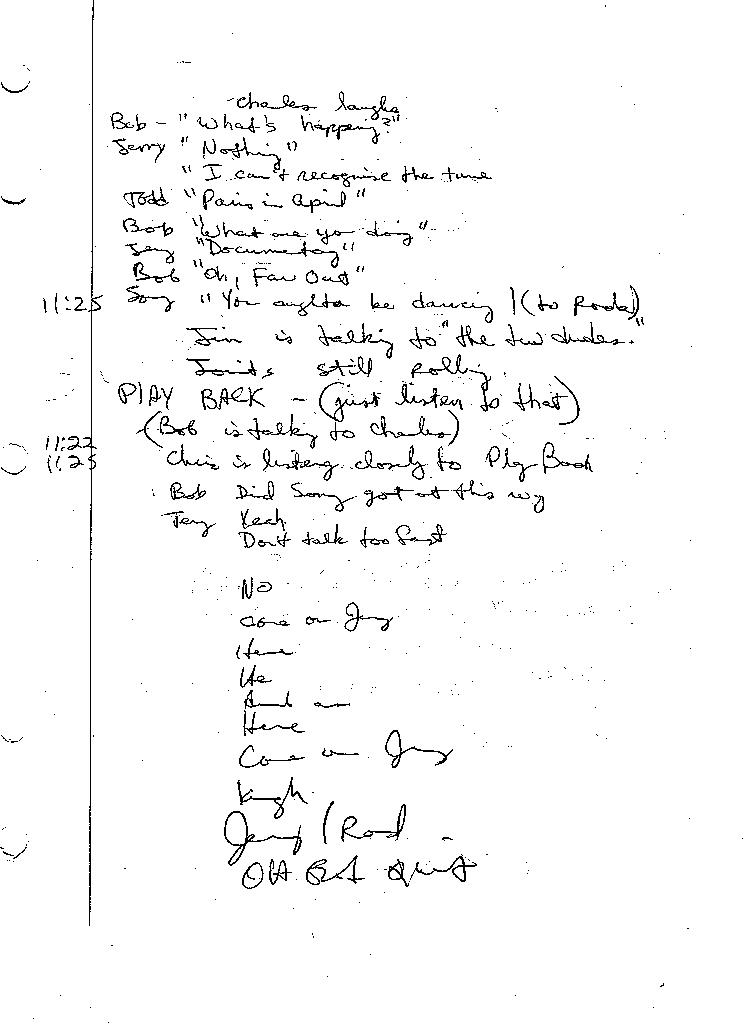 Charles laughs
Bob - "What's happening?"
Jerry "Nothing"
"I can't recognise the tune
Todd "Paris in April"
Bob "What are you doing"
Jerry "Documentary"
Bob "Oh, Far Out"
11:25 Song "You oughta be dancing / (to Rode)
Jim is talking to "the two dudes."
Joints still rolling.
PLAY BACK - (just listen to that)
(Bob is talking to Charles)
11:22
11:25 Chris is listening closely to Play Back
Bob Did Song got at this way
Jerry Yeah
Don't talk too fast
NO
Come on Jerry
Here
He
And
Here
Come on Jerry
laugh
Jerry / Road
OH